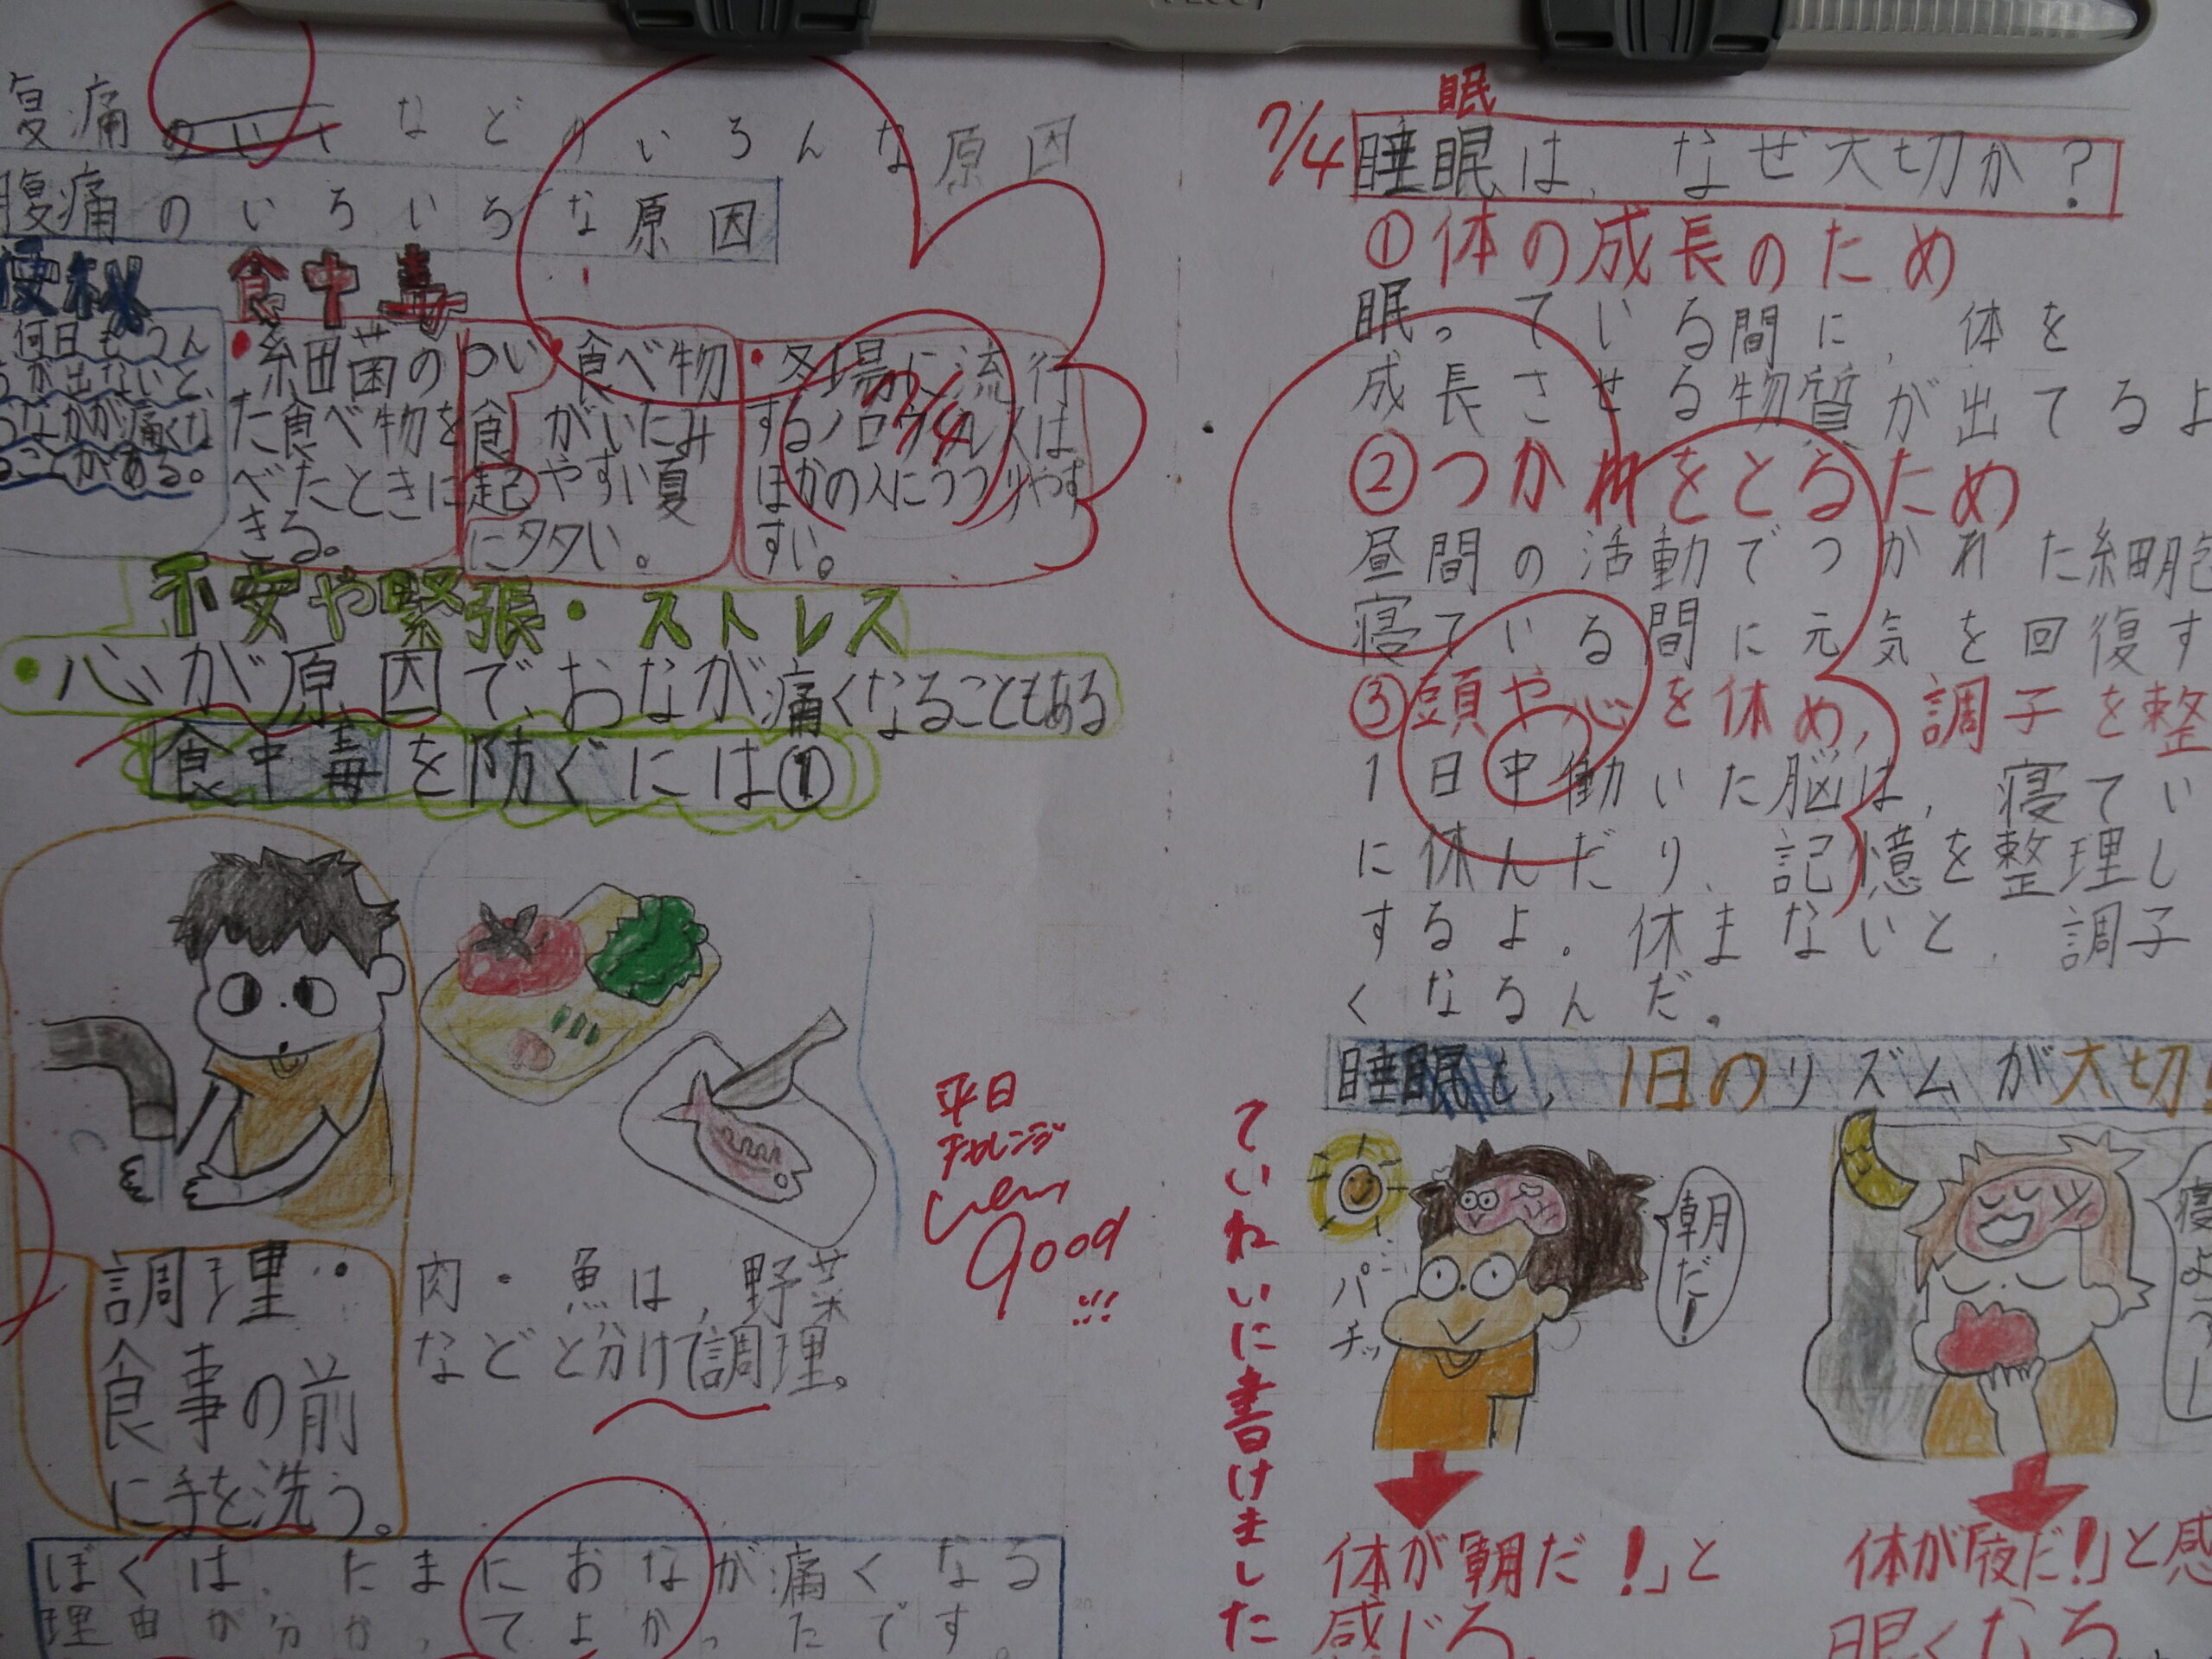 腹痛の
などのいろんな原因
腹痛のいろいろな原因
便秘
何日もうん
ちが出ないと、
おなかが痛くな
ることがある。
食中毒
・細菌のつい
た食べ物を食
べたときに起
きる。
・食べ物
がいたみ
やすい夏
に多い。
・冬場に流行
するノロウイルスは
ほかの人にうつりやす
すい。
7/4
不安や緊張・ストレス
・心が原因で、おなが痛くなることもある
食中毒を防ぐには①
調理・
食事の前
に手を洗う。
肉・魚は、野菜
などと分けて調理。
平日
チャレンジ
Good
!!!
ぼくは、たまにおなが痛くなる
理由が分かってよかったです。
7/4
眠
睡眠は、なぜ大切か?
①体の成長のため
眠っている間に、体を
成長させる物質が出てるよ
②つかれをとるため
昼間の活動でつかれた細胞
寝ている間に元気を回復す
③頭や心を休め、調子を整
1日中働いた脳は、寝てい
に休んだり、記憶を整理し
するよ。休まないと、調子
くなるんだ。
睡眠も、1日のリズムが大切!
ていねいに書けました
パチッ
朝だ!
寝よ
体が朝だ!」と
感じる。
体が「夜だ!」と感
眠くなる